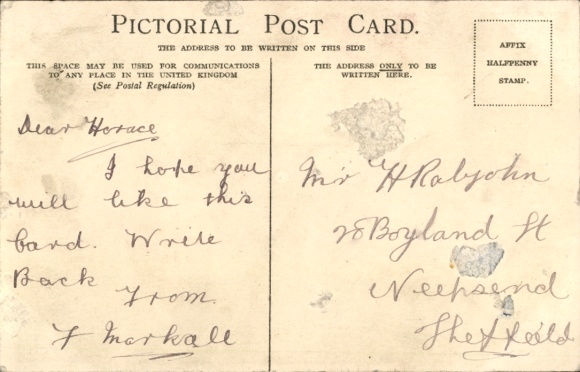 PICTORIAL POST CARD.
THE ADDRESS TO BE WRITTEN ON THIS SIDE
THIS SPACE MAY BE USED FOR COMMUNICATIONS
TO ANY PLACE IN THE UNITED KINGDOM
(See Postal Regulation)
THE ADDRESS ONLY TO BE
WRITTEN HERE.
AFFIX
HALFPENNY
STAMP.
Dear Horace
I hope you
will like this
Card. Write
Back
From
F Markall
Mr H Rabjohn
28 Boyland St
Neepsend
Sheffield